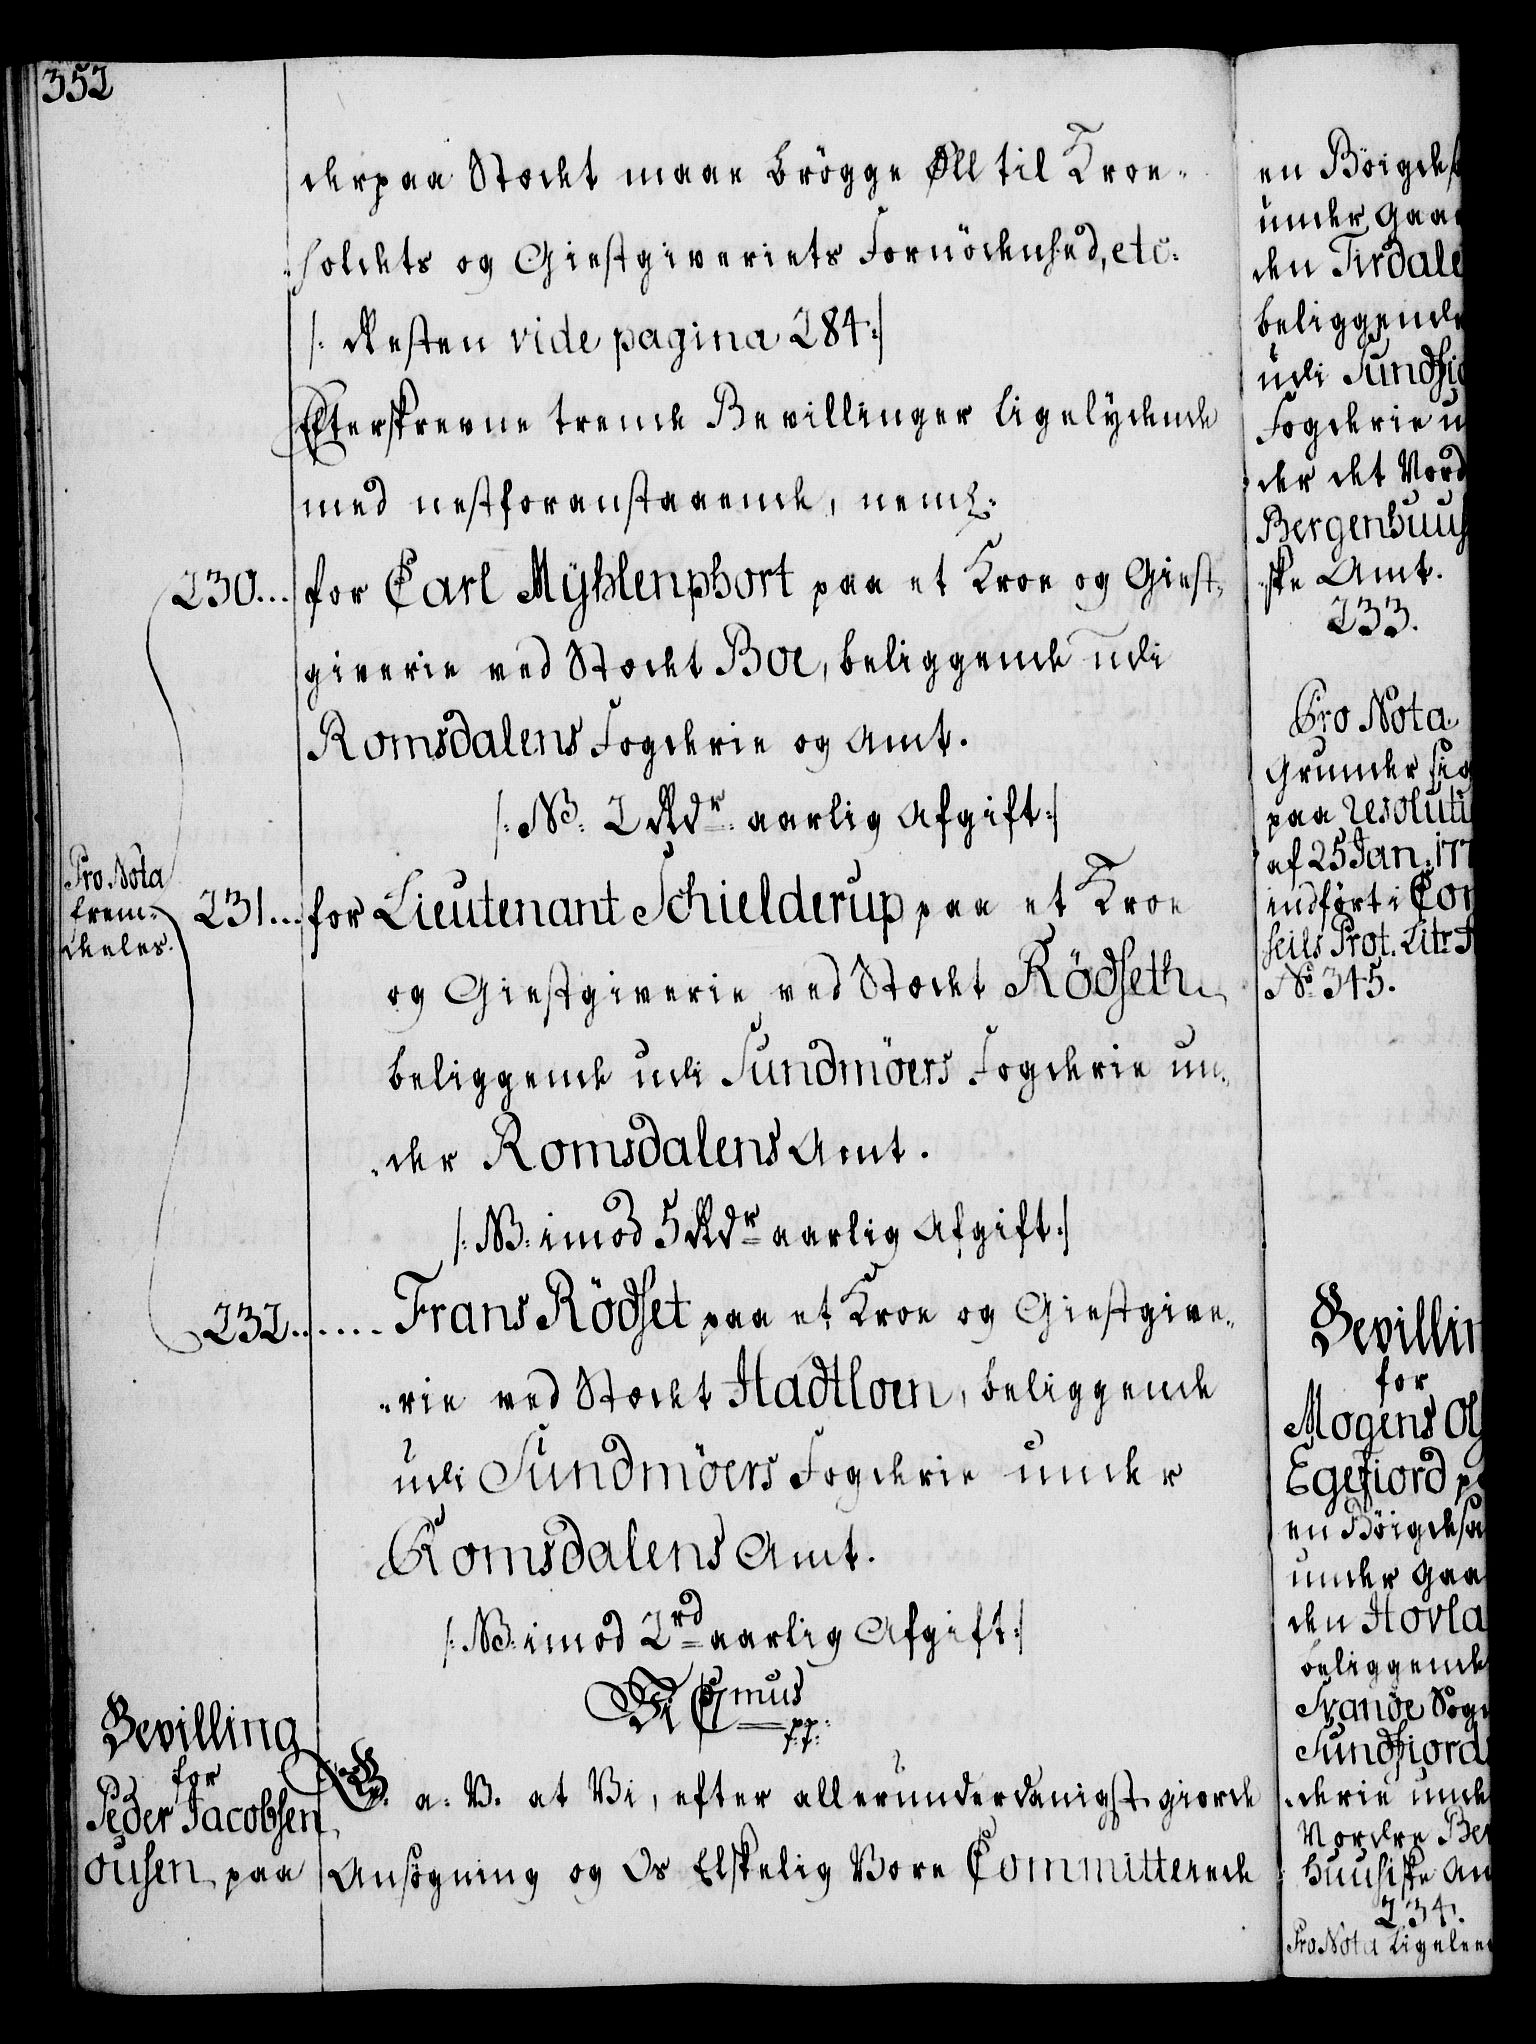 352
derpaa Stædet maae brögge Øll til Kroe-
holdets og Giestgiveriets Fornödenhed, etc:
/: Resten vide pagina 284:/
Efterskrevne trende Bevillinger ligelÿdende
med nestforanstaaende, neml:
230... for Carl Mÿhlenphort paa et Kroe og Giest-
giverie ved Stædet Boe, beliggende udi
Romsdalens Fogderie og Amt.
/: NB: 2 Rdr. aarlig Afgift:/
Pro Nota
frem-
deeles.
231... for Lieutenant Schielderup paa et Kroe
og Giestgiverie ved Stædet Rödseth
beliggende udi Sundmöers Fogderie un-
der Romsdalens Amt.
/: NB: imod 5 Rdr aarlig Afgift:/
232....... Frans Rödset paa et Kroe og Giestgive-
rie ved Stædet Hadtloen, beliggende
udi Sundmöers Fogderie under
Romsdalens Amt.
/: NB: imod 2rd aarlig Afgift:/
Vi Csmus
p.p:
Bevilling
for
Peder Jacobsen
ousen paa
G. a. V. at Vi, efter allerunderdanigst giorde
Ansögning og Os Elskelig Vore Committerede
en Böigdes
under Gaar
den Tirdale
beliggende
udi Sundfio
Fogderie u
der det Nord
Bergenhuus
ske Amt.
233.
Pro Nota
Grunder sig
paa resoluti
af 25 Jan: 177
indfört i Con
seils Prot. Litr. A
No 345.
Bevillin
for
Mogens Ols
Egefiord pa
en Böigdesa
under Gaa
den Hovla
beliggende
Svanöe Sogn
Sundfiords
derie unde
Nordre Ber
huusiske Am
234.
Pro Nota Ligelee